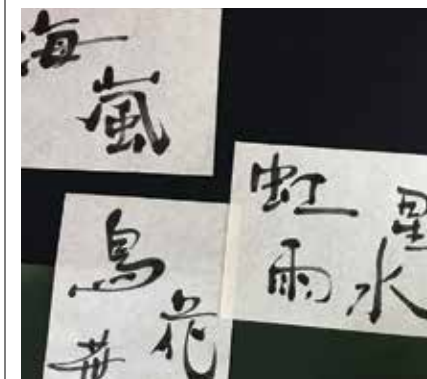 海
嵐
虹
星
雨
水
鳥
花